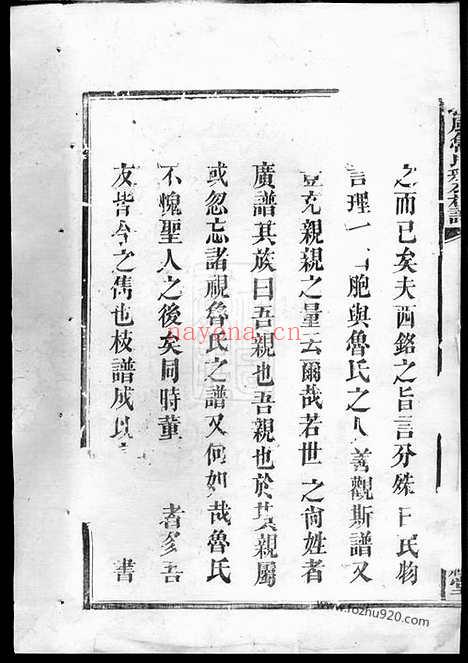 之而已矣夫西銘之旨言分殊 民物
言理一 胞與魯氏之人善觀斯譜又
豈充親親之量云爾哉若世之尚姓者
廣譜其族曰吾親也吾親也於其親屬
或忽忘諸視魯氏之譜又何如哉魯氏
不愧聖人之後矣同時董 者多吾
友皆今之雋也枝譜成以 書
nayona.cn
www.fozhu920.com